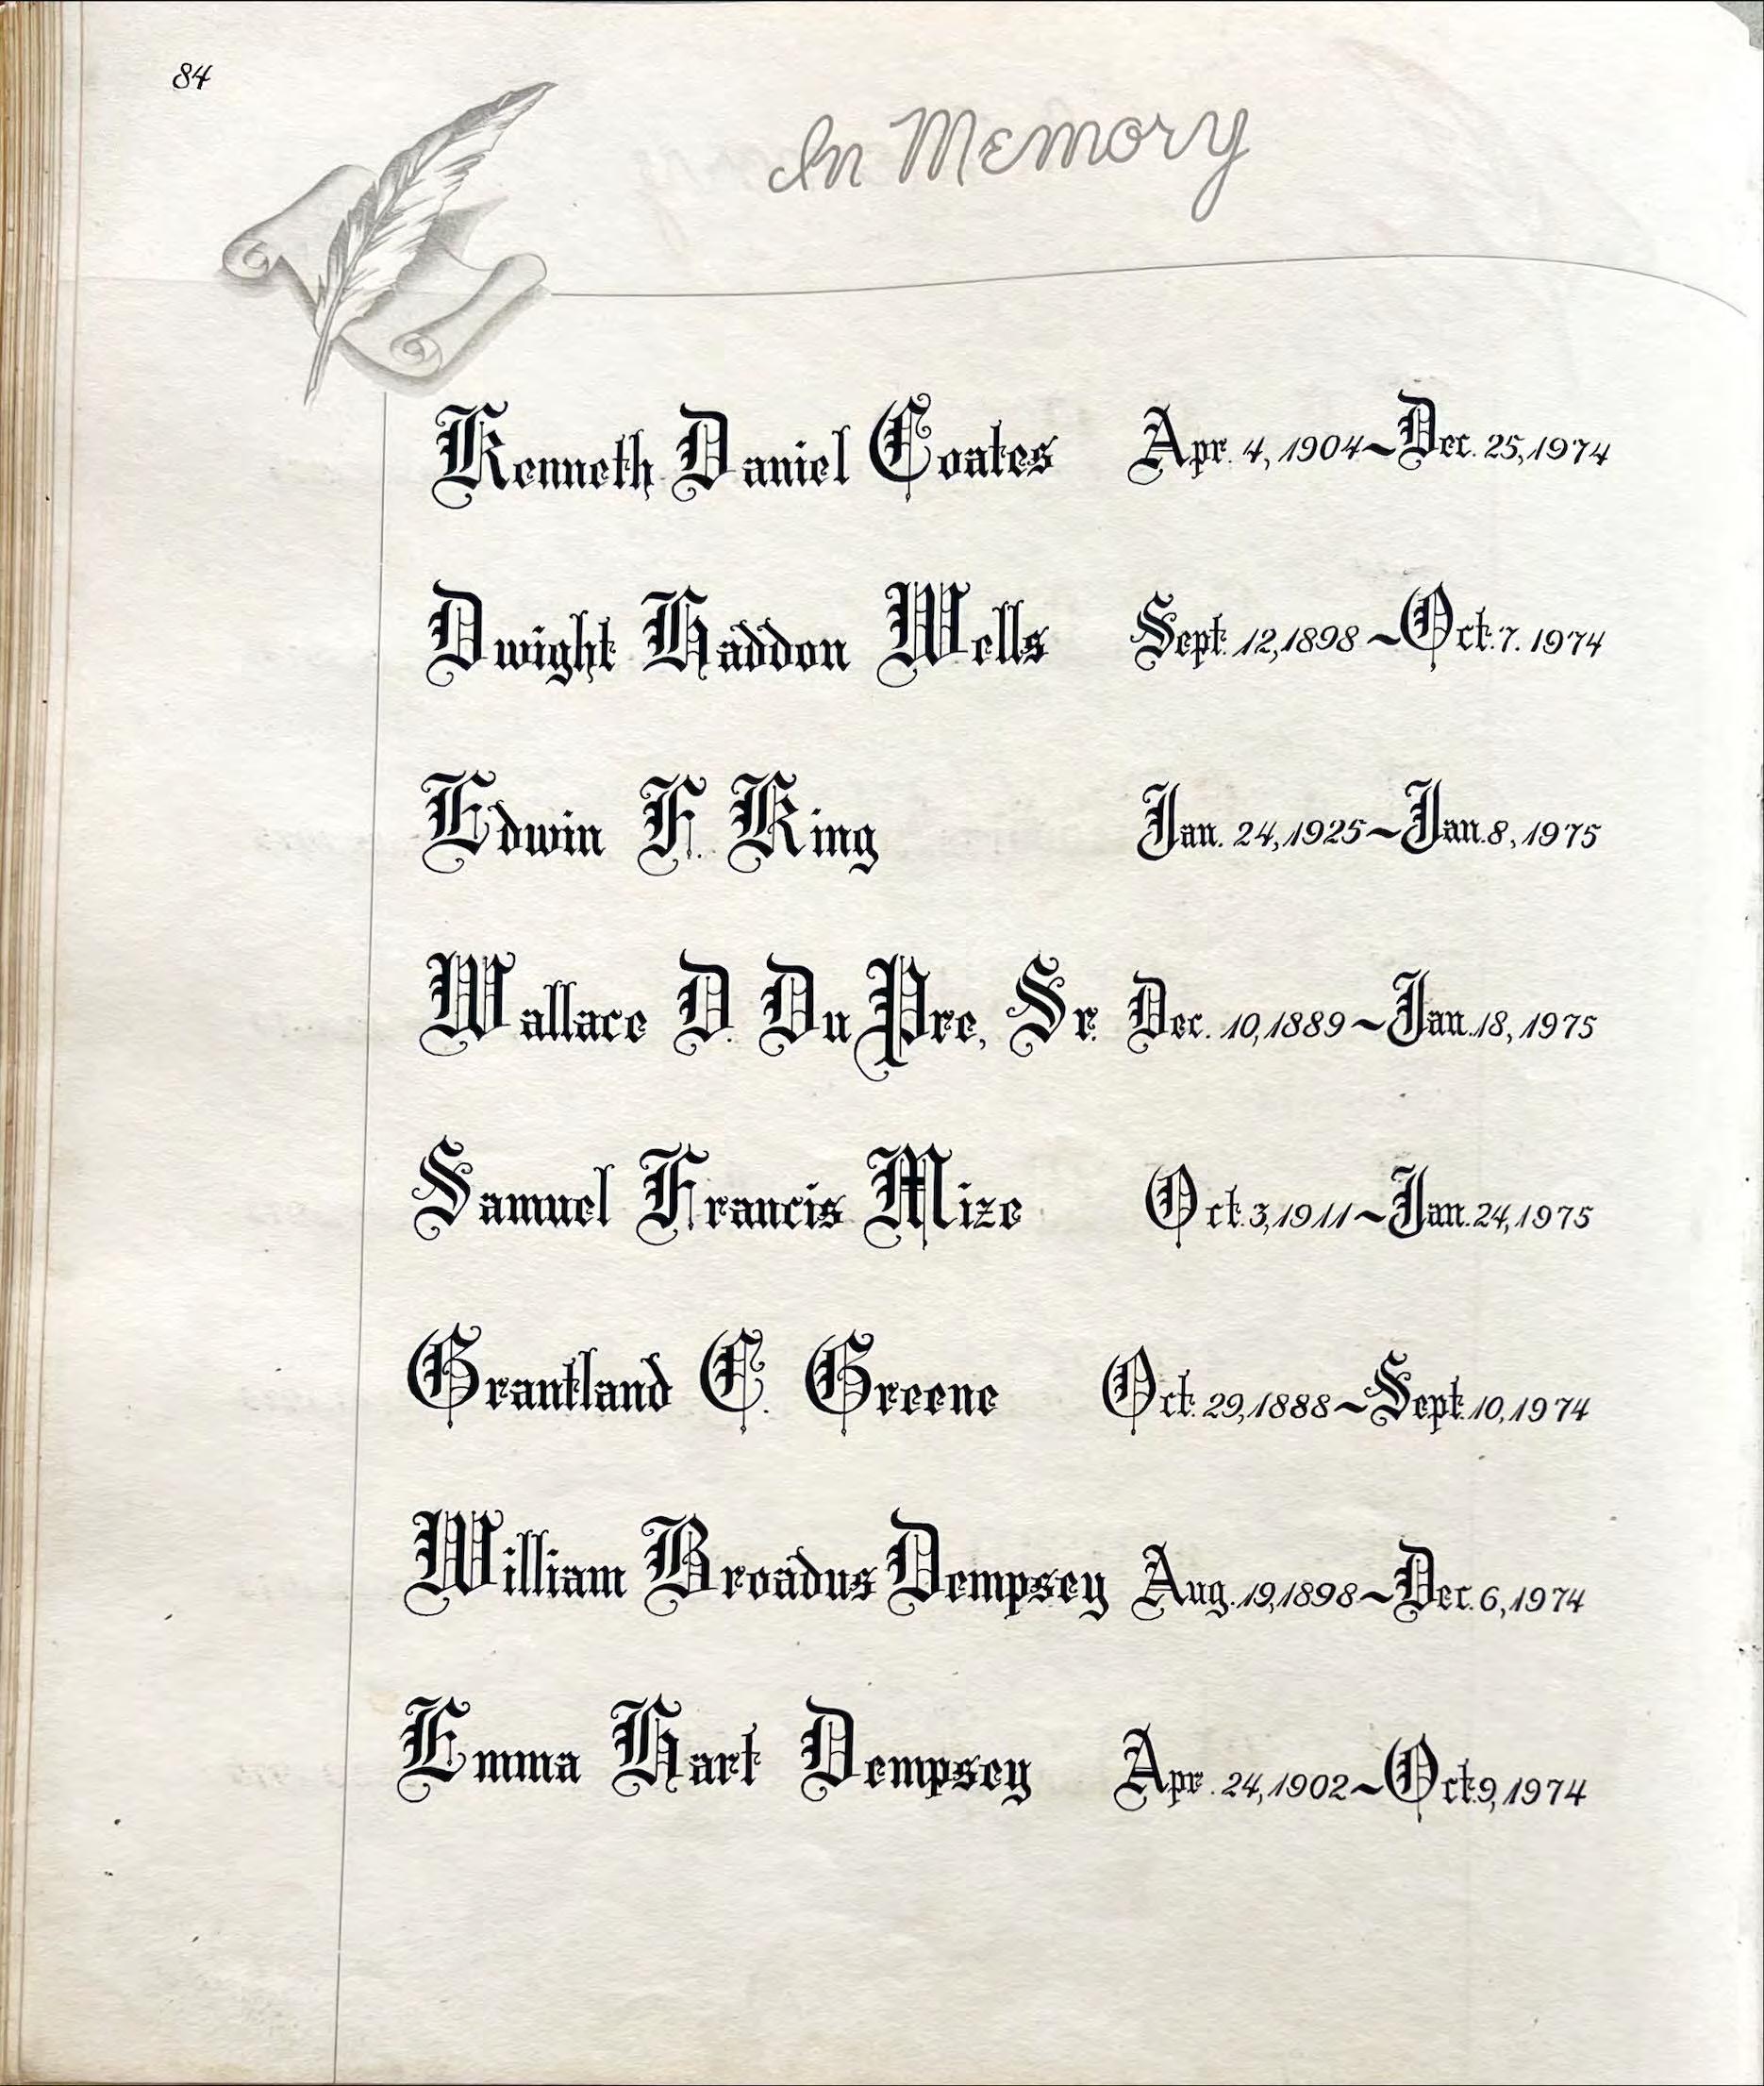 84
In Memory
Kenneth Daniel Coates Apr. 4, 1904~Dec. 25, 1974
Dwight Haddon Wells Sept. 12, 1898~Oct. 7. 1974
Edwin F. King Jan. 24, 1925~Jan. 8, 1975
Wallace D. Du Pre, Sr. Dec. 10, 1889~Jan. 18, 1975
Samuel Francis Mize Oct. 3, 1911~Jan. 24, 1975
Grantland C. Greene Oct. 29, 1888~Sept. 10, 1974
William Broadus Dempsey Aug. 19, 1898~Dec. 6, 1974
Emma Hart Dempsey Apr. 24, 1902~Oct. 9, 1974